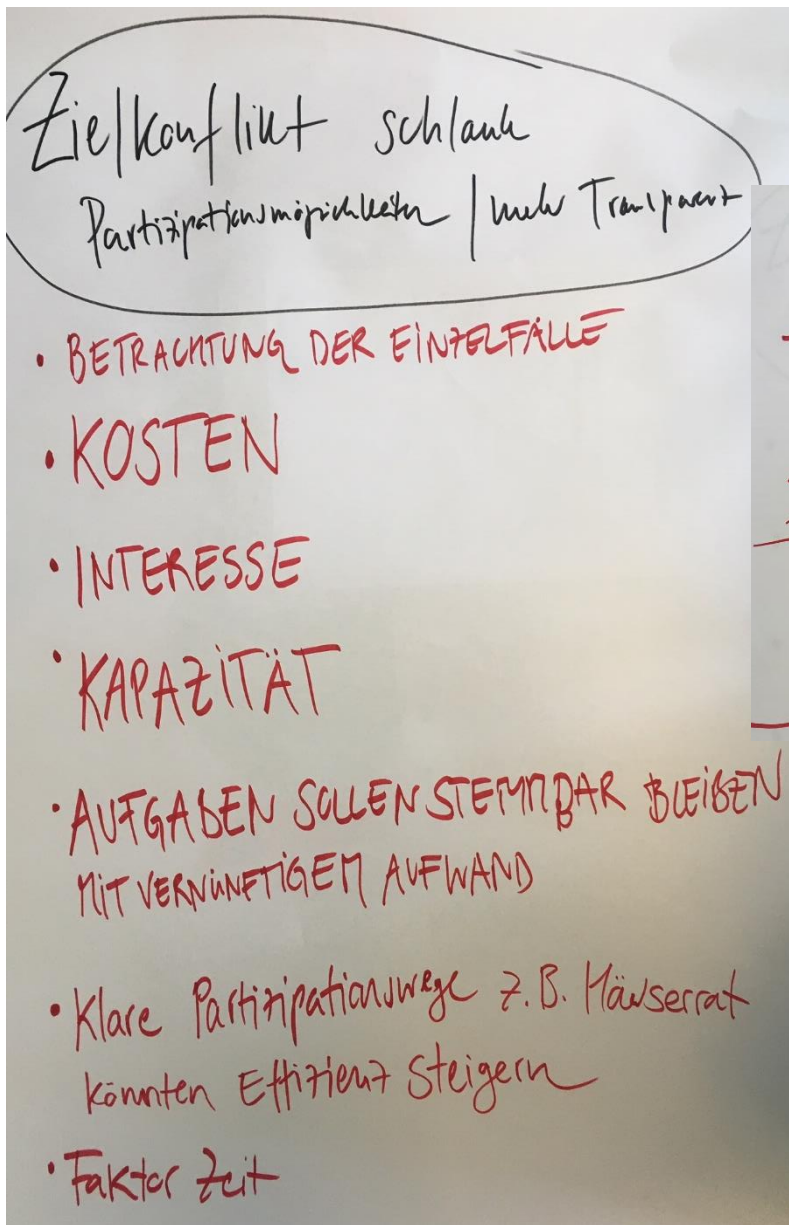 Zielkonflikt schlank
Partizipationsmöglichkeiten / mehr Transparenz
• BETRACHTUNG DER EINZELFÄLLE
• KOSTEN
• INTERESSE
• KAPAZITÄT
• AUFGABEN SOLLEN STEMMBAR BLEIBEN
MIT VERNÜNFTIGEM AUFWAND
• Klare Partizipationswege z.B. Häuserrat
könnten Effizienz steigern
• Faktor Zeit